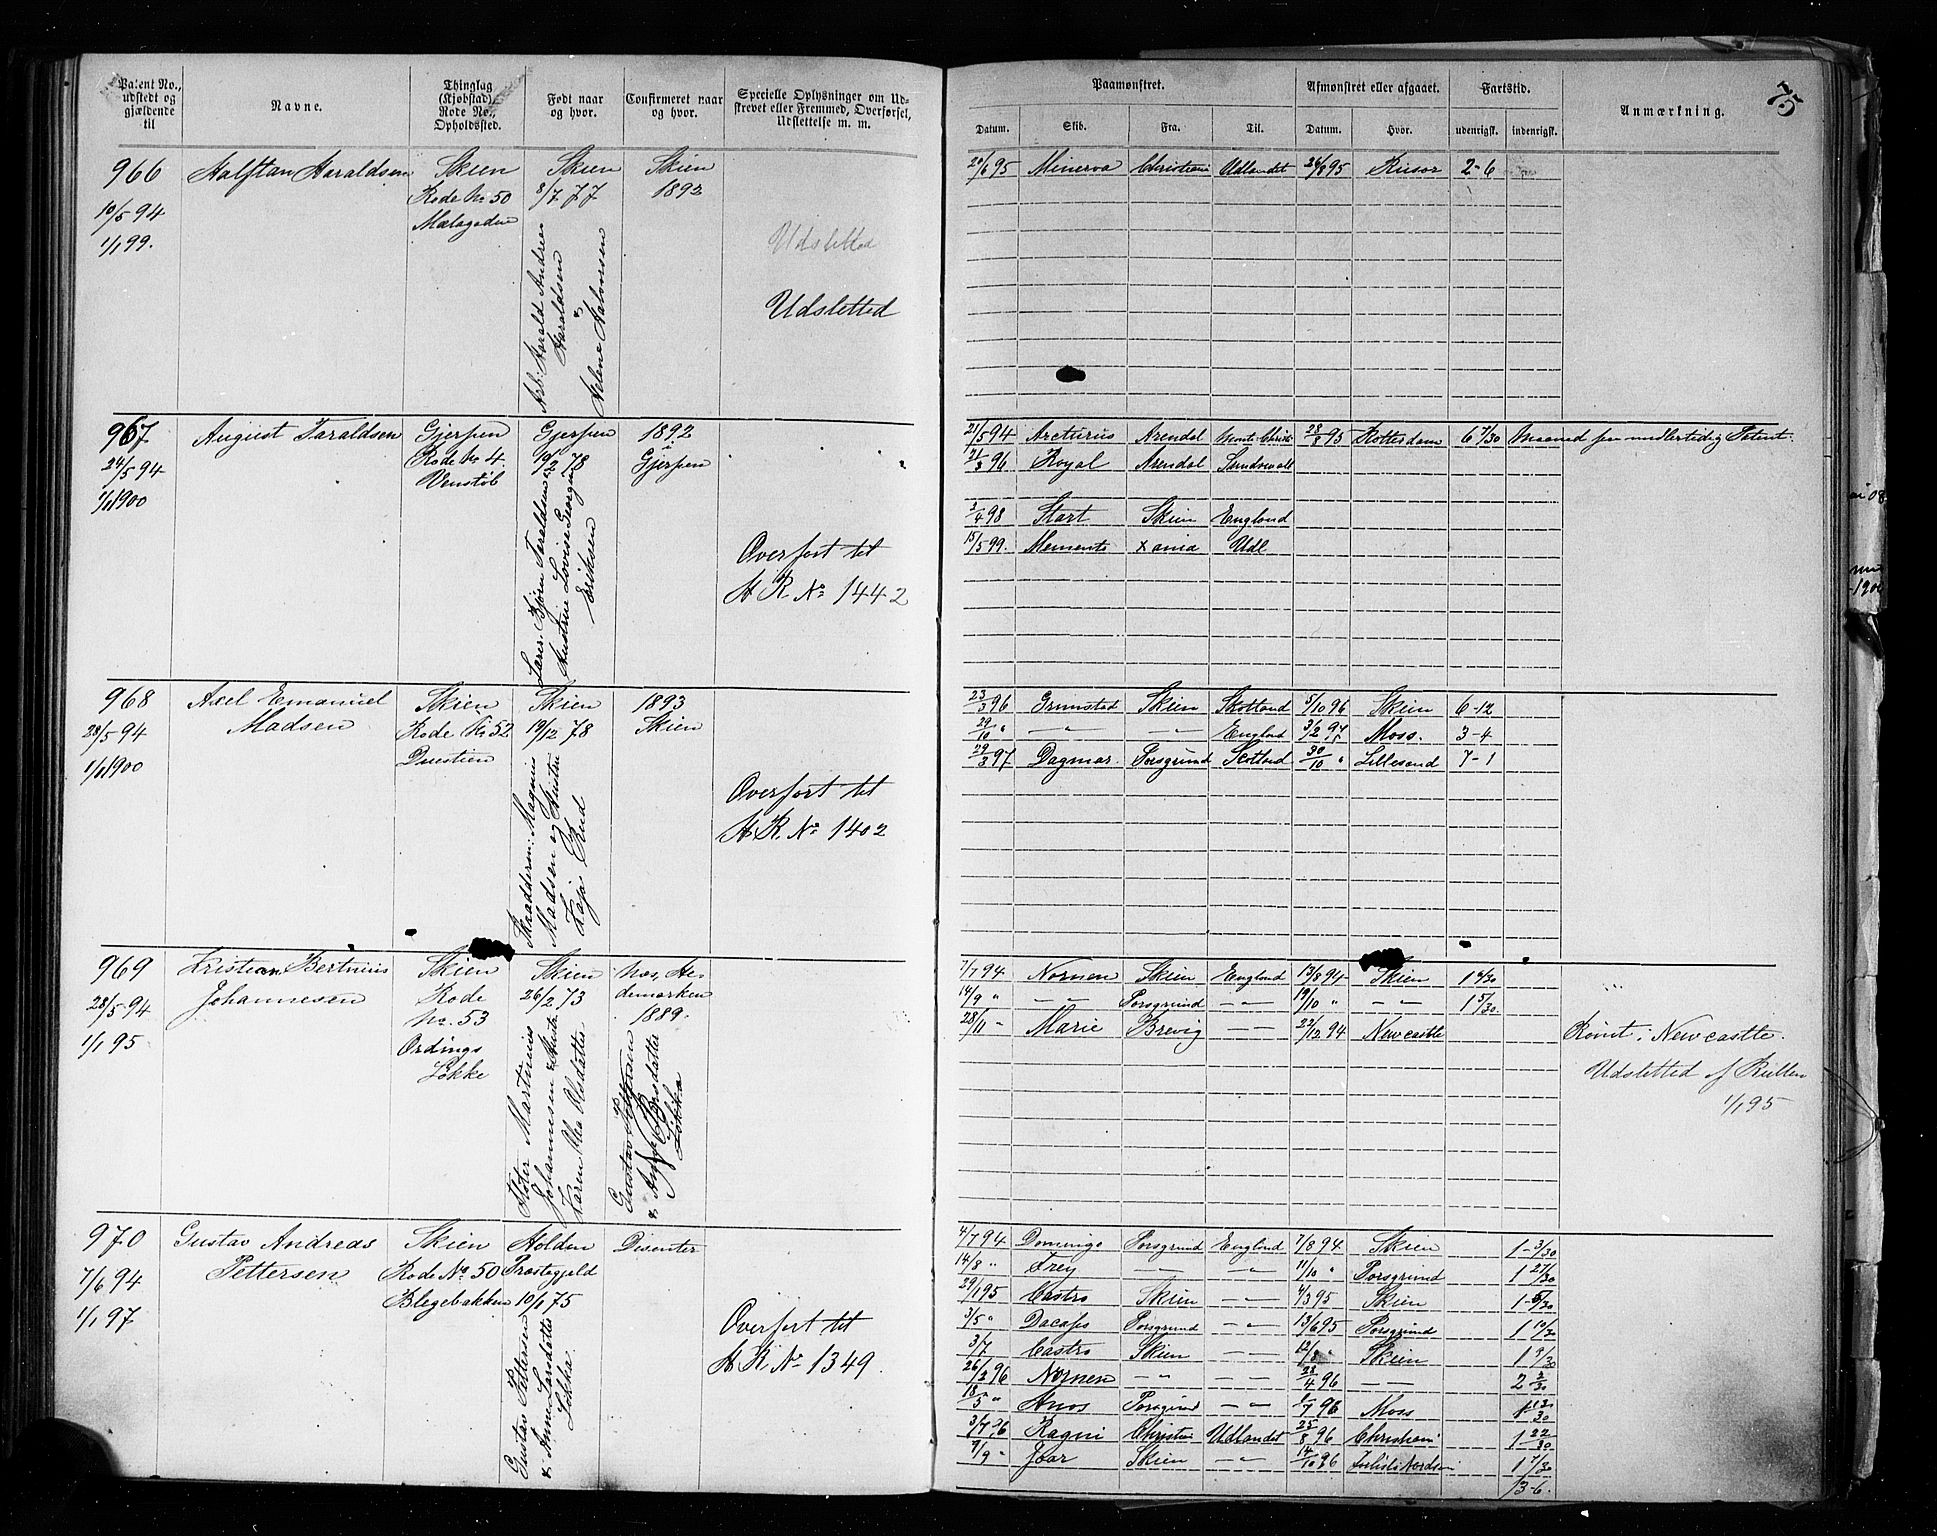 Patent No., udstedt og gjældende til
Navne.
Thinglag (Kjøbstad), Rode No., Opholdssted.
Født naar og hvor.
Confirmeret naar og hvor.
Specielle Oplysninger om Udskrevet eller Fremmed, Overførsel, Udslettelse m. m.
Paamønstret.
Afmønstret eller afgaaet.
Fartstid.
Anmærkning.
75
Datum.
Skib.
Fra.
Til.
Datum.
Hvor.
udenrigsk.
indenrigsk.
966
10/5 94
1/1 99.
Halftan Haraldsen
Skien
Rode No 50
Mælagaden
Skien
8/7 77
Arb: Harald Andreas
Haraldsen
&
Helene Halvorsen
Skien
1892
Udsletted
Udsletted
20/6 95 Minerva Christiania Udlandet 26/8 95 Risør 2-6
967
24/5 94
1/1 1900
August Taraldsen
Gjerpen
Rode No 4.
Venstøb
Gjerpen
19/2 78
Lærer. Bjørn Taraldsen &
Austrine Lovise Georgine
Eriksen
1892
Gjerpen
Overført til
H R No 1442
21/5 94 Arcturus Arendal Monte Christi 28/8 95 Rotterdam 6 7/30 Maaned paa midlertidig Patent.
21/3 96 Royal Arendal Sundsvall
2/4 98 Start Skien England
15/5 99. Memento Xania Udl
968
28/5 94
1/1 1900
Axel Emanuel
Madsen
Skien
Rode No 52
Duestien
Skien
19/12 78
Skrædderm. Magnus
Madsen og Hustru
Kaja Rud
1893
Skien
Overført til
H. R. No 1402
23/3 96 Grimstad Skien Skotland 5/10 96 Skien 6-12
29/10 " — — England 3/2 97 Moss. 3-4
29/3 97 Dagmar Porsgrund Scotland 30/10 " Lillesand 7-1
969
28/5 94
1/1 95
Kristian Bertinius
Johannesen
Skien
Rode
No. 53
Ordings
Løkke
Skien
26/2 73
Martinius
Johannesen & Hustr.
Karen Thea Olesdatter
Næs, Hedemarken
1889.
Gustav Pettersen
7/7 94 Nornen Skien England 13/8 94 Skien 1 6/30
14/9 " — — Porsgrund — 19/10 " — — 1 5/30.
28/11 " Marie Brevig — — 22/12 94 Newcastle
Rømt i Newcastle.
Udslettet af Rullen
1/1 95
970
7/6 94
1/1 97
Gustav Andreas
Pettersen
Skien
Rode No 50
Blegebakken
Holden
Præstegjeld
10/1 75
Gustav Pettersen
& Anne Larsdatter
Løkka.
Disenter
Overført til
H R No 1349.
4/7 94 Domingo Porsgrund England 7/8 94 Skien 1-3/30
14/8 " Frey — — 11/10 " Porsgrund 1 27/30
29/1 95 Castro Skien — 4/3 95 Skien 1-5/30
3/5 " Porsgrund — 13/6 95 Porsgrund 1 10/30
3/7 Castro Skien — — 12/8 " Skien 1 9/30
26/2 96 Nornen — — 28/4 96 — — 2 2/30
18/5 " Amos Porsgrund — 96 Moss
3/7 96 Ragni Christia Udlandet 25/8 96 Christiani 1 22/30
9/9 " Skien — 14/10 96 1 7/30
13-6.